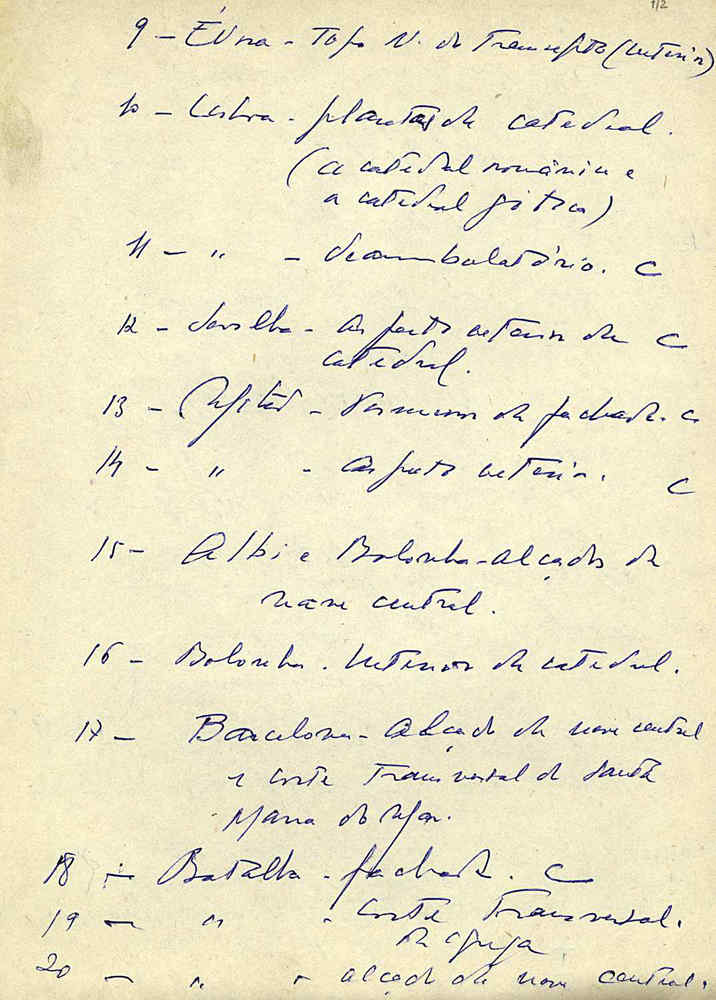 1/2
9 - Évora - Topo N. do Transepto (interior)
10 - Lisboa - plantas da catedral.
(a catedral românica e
a catedral gótica)
11 - " - deambulatório. C
12 - Sevilha - Aspecto exterior da C
catedral.
13 - - da fachada. C
14 - " - Aspecto exterior. C
15 - Albi e Bolonha - alçados da
nave central.
16 - Bolonha. Interior da catedral.
17 - Barcelona - Alçado da nave central
e corte transversal de Santa
Maria do Mar.
18 - Batalha - fachada. C
19 - " - corte transversal.
da igreja
20 - " - alçado da nave central.